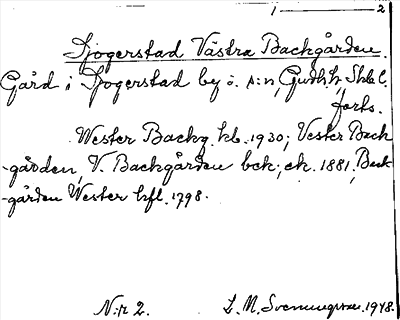 1 — 2
Sjogerstad Västra Backgården.
Gård i Sjogerstad by o. s:n, Gudh. h. Skbl.
forts.
Wester Backg. kb. 1930; Vester Back
-gården, V. Backgården bck; ek. 1881; Back
-gården Wester hfl. 1798.
N:r 2. 1948.